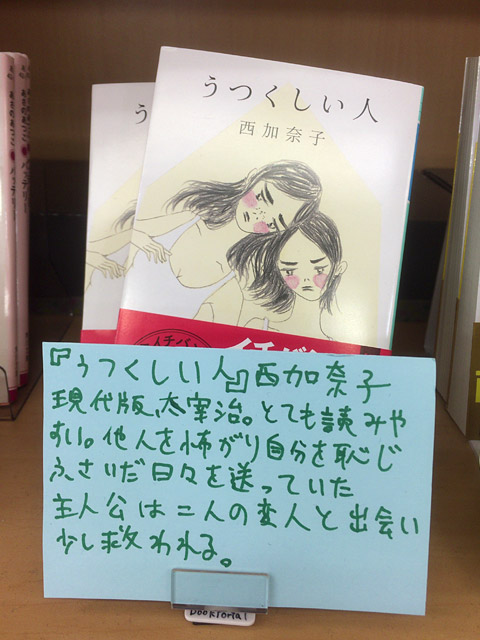 うつくしい人
西加奈子
『うつくしい人』西加奈子
現代版、太宰治。とても読みや
すい。他人を怖がり自分を恥じ
ふさいだ日々を送っていた
主人公は二人の変人と出会い
少し救われる。
Booktorial